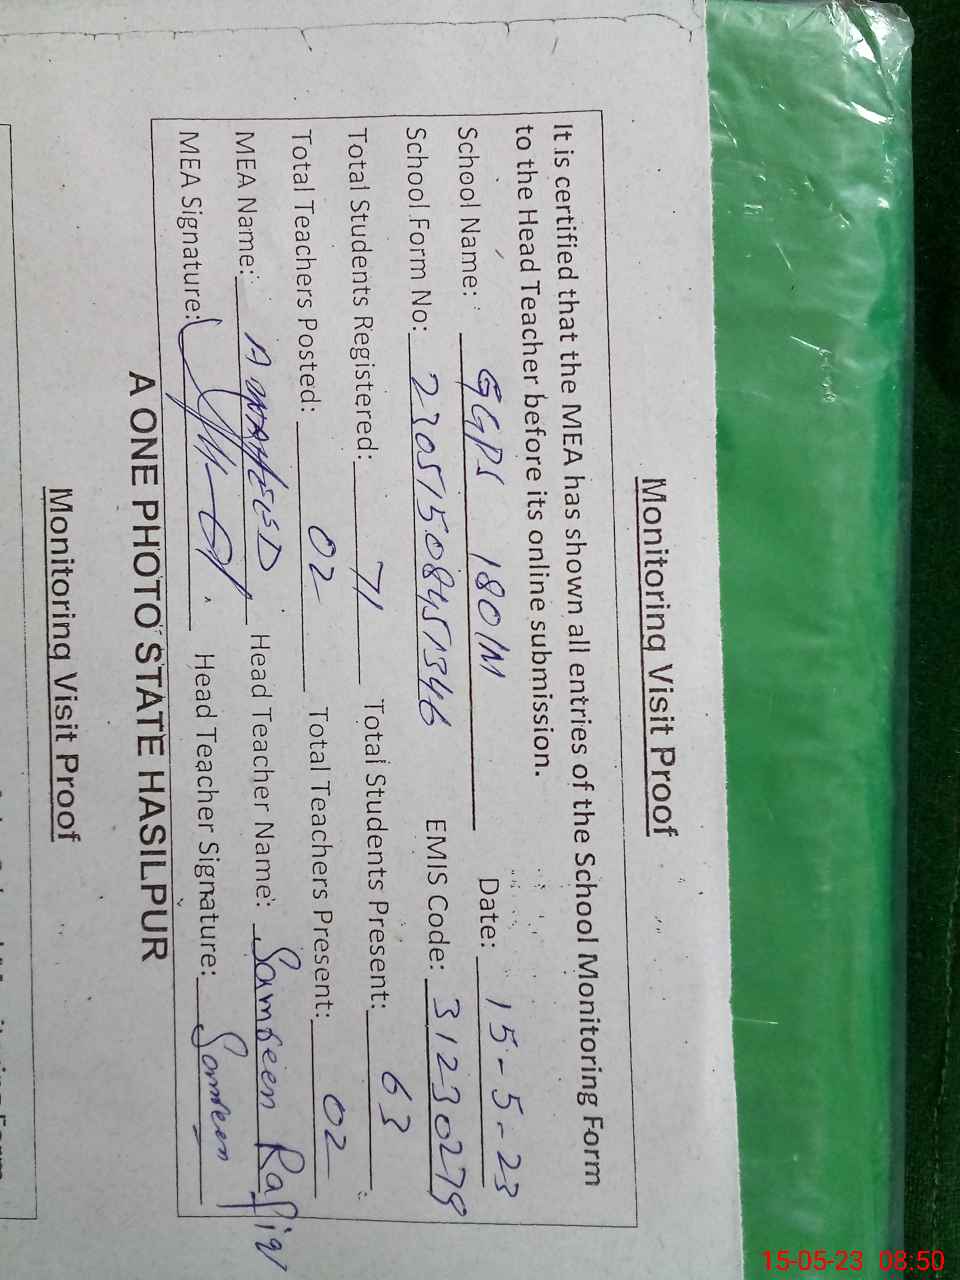 Monitoring Visit Proof
It is certified that the MEA has shown all entries of the School Monitoring Form
to the Head Teacher before its online submission.
School Name: GGPS 180/M Date: 15-5-23
School Form No: 22051508451346 EMIS Code: 31230279
Total Students Registered: 71 Total Students Present: 63
Total Teachers Posted: 02 Total Teachers Present: 02
MEA Name: Head Teacher Name: Samreen Rafiq
MEA Signature: Head Teacher Signature: Samreen
A ONE PHOTO STATE HASILPUR
Monitoring Visit Proof
15-05-23 08:50